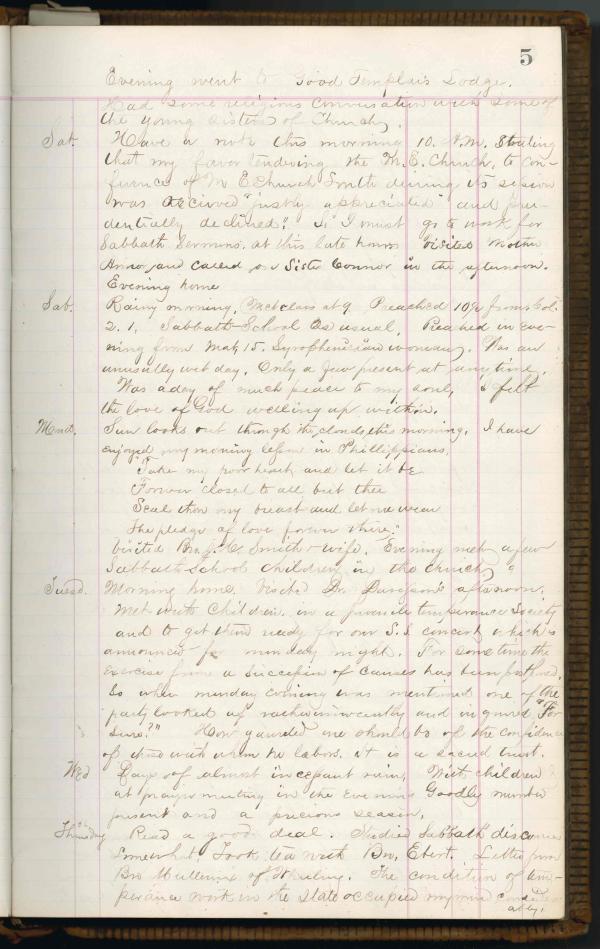 5
Evening went to Good Templars Lodge.
Had some religious conversation with some of
the young sisters of Church.
Sat. Have a note this morning 10. A.M. Stating
that my favor tendering the M.E. Church, to con-
ference of M E Church South during its session
was received "justly appreciated" and pru-
dentially declined". So I must go to work for
Sabbath Sermons. at this late hour Visited Mother
and called on Sister Connor in the afternoon.
Evening home
Sab. Rainy morning. Met class at 9. Preached 10½ from Col.
2. 1. Sabbath School as usual. Preached in eve-
ning from Mat, 15. Syrophenician woman. Was an
unusually wet day. Only a few present at any time.
Was a day of much peace to my soul, I felt
the love of God welling up within.
Mond. Sun looks out through the clouds this morning. I have
enjoyed my morning lesson in Phillippians,
"Take my poor heart and let it be
Forever closed to all but thee
Seal thou my breast and let me wear
The pledge of love forever there."
Visited Bro. Smith & wife. Evening met a few
Sabbath School children in the church
Tuesd. Morning home. Visited Dr. Davisson's afternoon.
Met with Children. in a juvenile temperance Society
and to get them ready for our S.S concert which is
announced for monday night. For some time the
exercise from a succession of causes has been postponed.
So when monday evening was mentioned one of the
party looked up rather innocently and inquired "For
sure?" How guarded one should be of the confidence
of those with whom he labors. it is a sacred trust.
Wed Day of almost incessant rain. With children
at prayer meeting in the evening Goodly number
present and a precious season.
Thursday Read a good deal. Studied Sabbath discourse
somewhat. Took tea with Bro. Ebert. Letter from
Bro Mullenix of Wheeling. The condition of tem-
perance work in the State occupied my mind consider
ably.